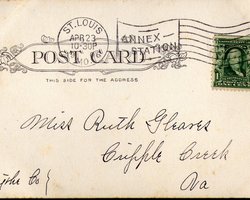 ST. LOUIS
APR 23
10-30P
ANNEX
STATION
POST CARD
THIS SIDE FOR THE ADDRESS
Miss Ruth Gleaves
Cripple Creek
Va